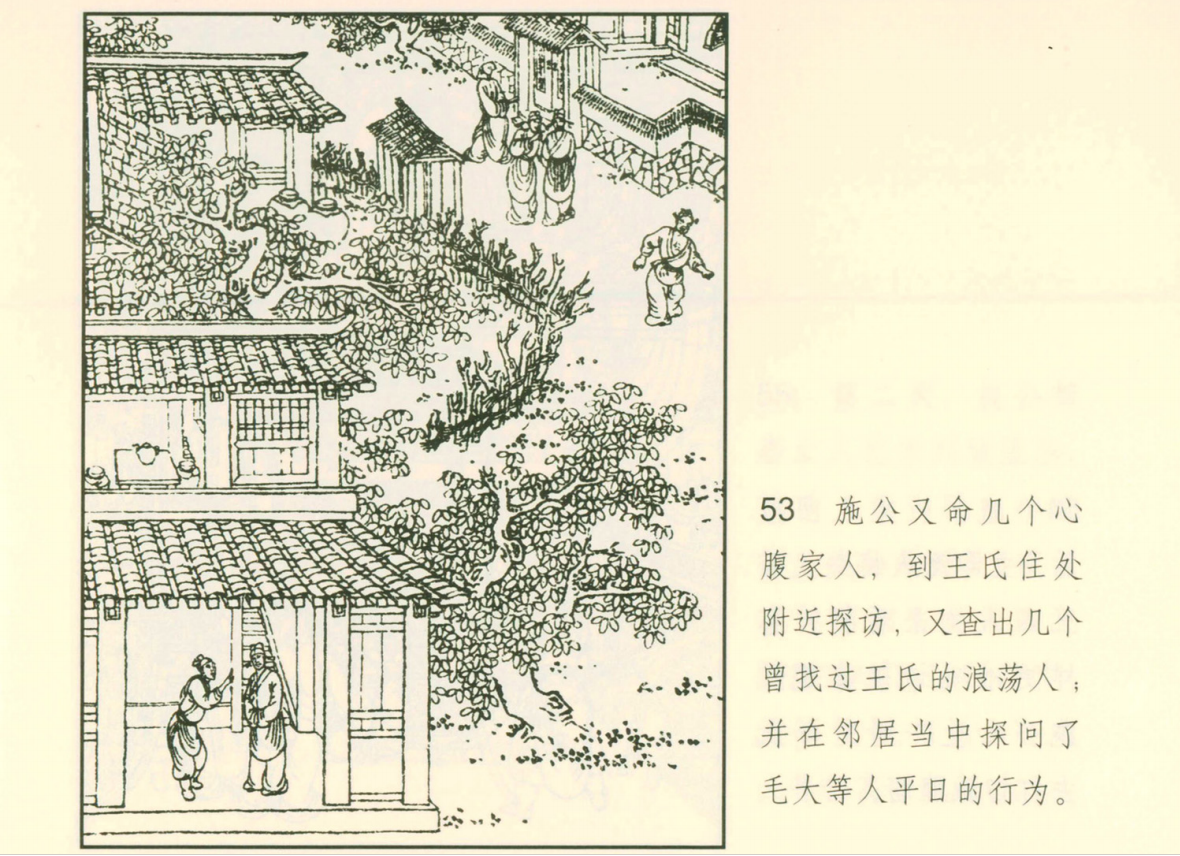 53 施公又命几个心
腹家人，到王氏住处
附近探访，又查出几个
曾找过王氏的浪荡人；
并在邻居当中探问了
毛大等人平日的行为。